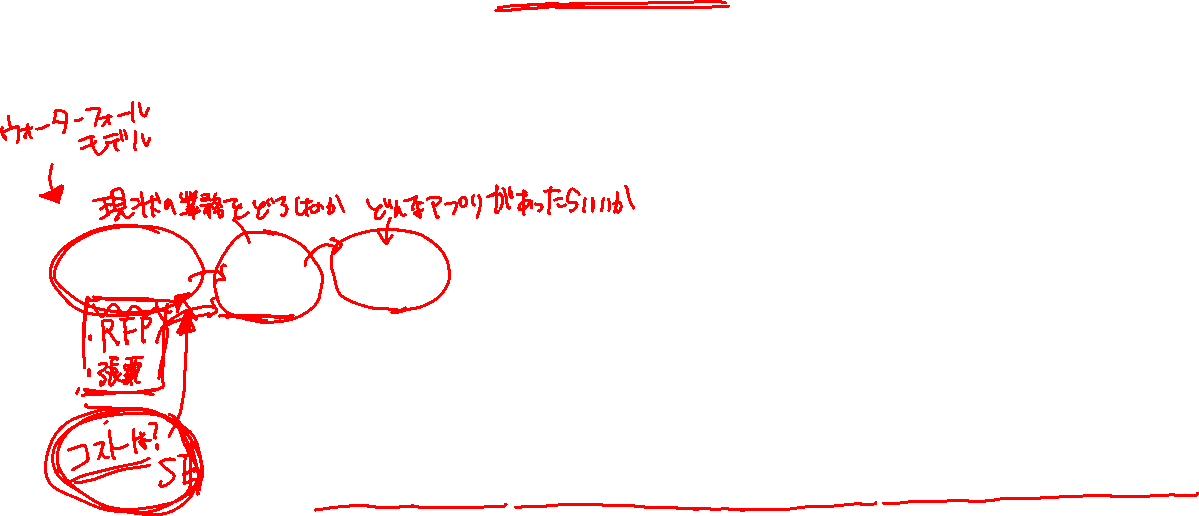 ウォーターフォール
モデル
現状の業務をどうなのか どんなアプリがあったらいいか
RFP
張票
コストは?
SE